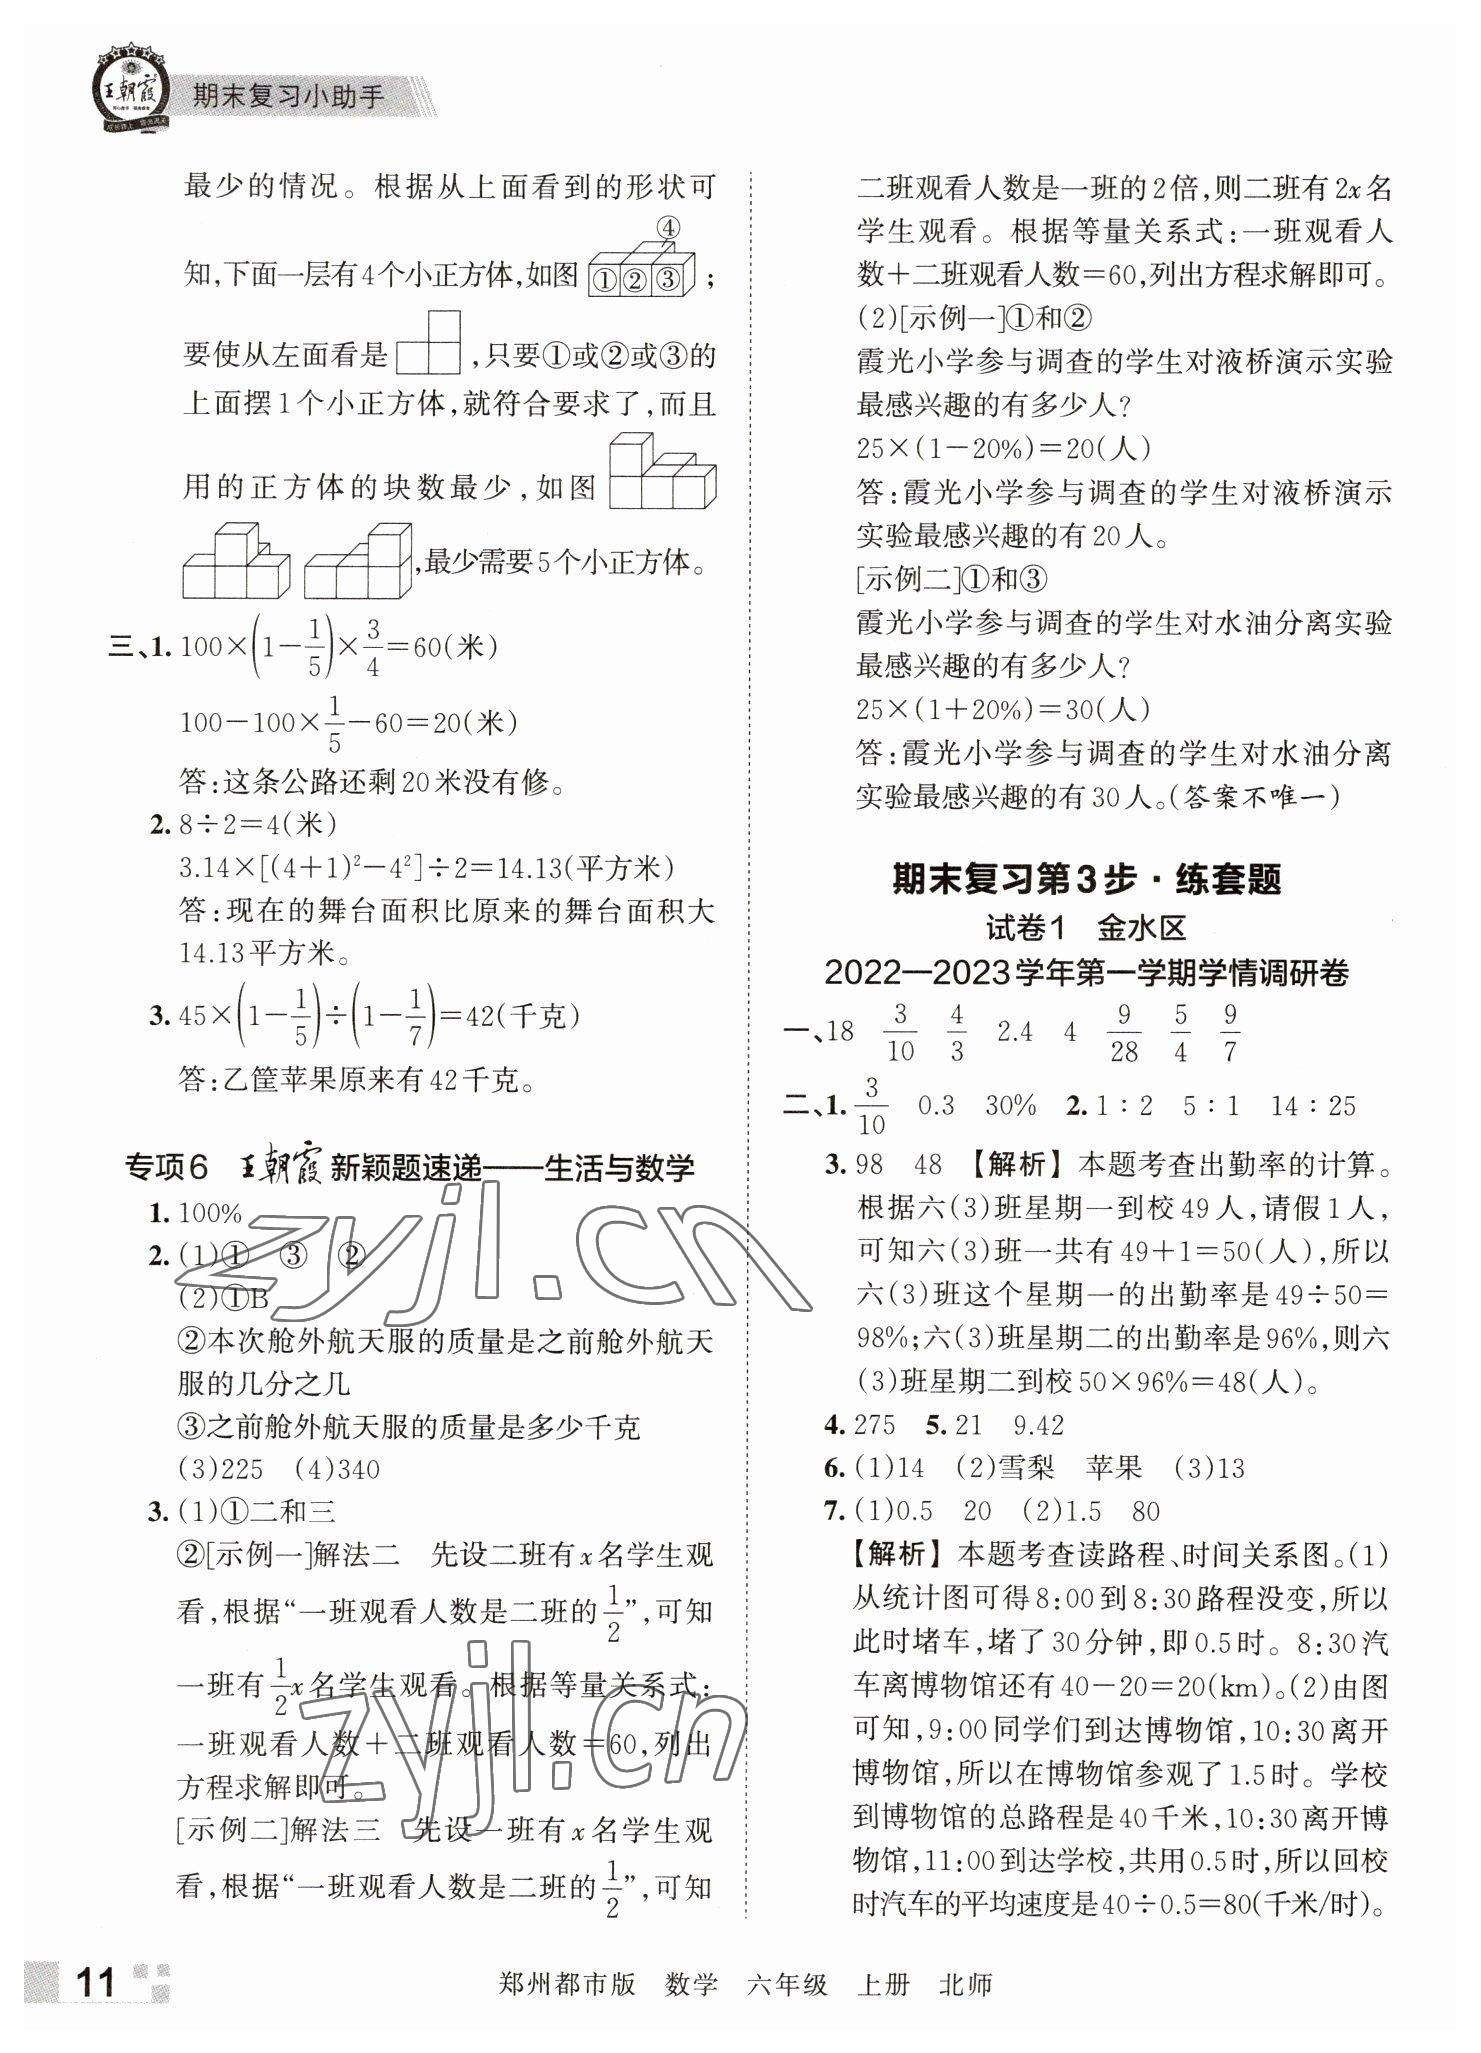 王朝霞
期末复习小助手
最少的情况。根据从上面看到的形状可
知,下面一层有4个小正方体,如图①②③④;
要使从左面看是,只要①或②或③的
上面摆1个小正方体,就符合要求了,而且
用的正方体的块数最少,如图
,最少需要5个小正方体。
三、1. 100×(1-1/5)×3/4=60(米)
100-100×1/5-60=20(米)
答:这条公路还剩20米没有修。
2. 8÷2=4(米)
3.14×[(4+1)²-4²]÷2=14.13(平方米)
答:现在的舞台面积比原来的舞台面积大
14.13平方米。
3. 45×(1-1/5)÷(1-1/7)=42(千克)
答:乙筐苹果原来有42千克。
专项6 王朝霞新颖题速递——生活与数学
1. 100%
2. (1)① ③ ②
(2)①B
②本次舱外航天服的质量是之前舱外航天
服的几分之几
③之前舱外航天服的质量是多少千克
(3)225 (4)340
3. (1)①二和三
②[示例一]解法二 先设二班有x名学生观
看,根据“一班观看人数是二班的1/2”,可知
一班有1/2x名学生观看。根据等量关系式:
一班观看人数+二班观看人数=60,列出
方程求解即可。
[示例二]解法三 先设一班有x名学生观
看,根据“一班观看人数是二班的1/2”,可知
二班观看人数是一班的2倍,则二班有2x名
学生观看。根据等量关系式:一班观看人
数+二班观看人数=60,列出方程求解即可。
(2)[示例一]①和②
霞光小学参与调查的学生对液桥演示实验
最感兴趣的有多少人?
25×(1-20%)=20(人)
答:霞光小学参与调查的学生对液桥演示
实验最感兴趣的有20人。
[示例二]①和③
霞光小学参与调查的学生对水油分离实验
最感兴趣的有多少人?
25×(1+20%)=30(人)
答:霞光小学参与调查的学生对水油分离
实验最感兴趣的有30人。(答案不唯一)
期末复习第3步·练套题
试卷1 金水区
2022—2023学年第一学期学情调研卷
一、18 3/10 4/3 2.4 4 9/28 5/4 9/7
二、1. 3/10 0.3 30% 2. 1∶2 5∶1 14∶25
3. 98 48 【解析】本题考查出勤率的计算。
根据六(3)班星期一到校49人,请假1人,
可知六(3)班一共有49+1=50(人),所以
六(3)班这个星期一的出勤率是49÷50=
98%;六(3)班星期二的出勤率是96%,则六
(3)班星期二到校50×96%=48(人)。
4. 275 5. 21 9.42
6. (1)14 (2)雪梨 苹果 (3)13
7. (1)0.5 20 (2)1.5 80
【解析】本题考查读路程、时间关系图。(1)
从统计图可得8:00到8:30路程没变,所以
此时堵车,堵了30分钟,即0.5时。8:30汽
车离博物馆还有40-20=20(km)。(2)由图
可知,9:00同学们到达博物馆,10:30离开
博物馆,所以在博物馆参观了1.5时。学校
到博物馆的总路程是40千米,10:30离开博
物馆,11:00到达学校,共用0.5时,所以回校
时汽车的平均速度是40÷0.5=80(千米/时)。
zyjl.cn
zyjl.cn
11
郑州都市版 数学 六年级 上册 北师